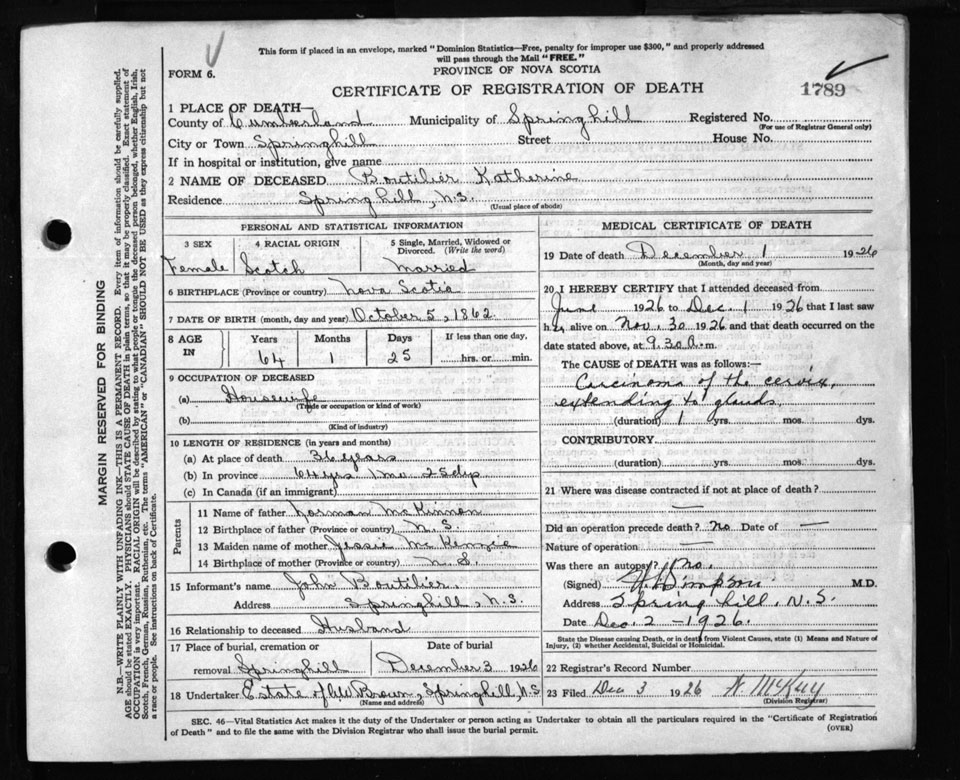 This form if placed in an envelope, marked "Dominion Statistics—Free, penalty for improper use $300," and properly addressed
will pass through the Mail "FREE."
FORM 6.
PROVINCE OF NOVA SCOTIA
CERTIFICATE OF REGISTRATION OF DEATH
1789
1 PLACE OF DEATH—
County of Cumberland Municipality of Springhill Registered No.
(For use of Registrar General only)
City or Town Springhill Street House No.
If in hospital or institution, give name
2 NAME OF DECEASED Boutilier Katherine
Residence Springhill, N.S.
(Usual place of abode)
PERSONAL AND STATISTICAL INFORMATION
3 SEX 4 RACIAL ORIGIN 5 Single, Married, Widowed or Divorced. (Write the word)
Female Scotch Married
6 BIRTHPLACE (Province or country) Nova Scotia
7 DATE OF BIRTH (month, day and year) October 5, 1862.
8 AGE IN Years Months Days If less than one day,
64 1 25 hrs. or min.
9 OCCUPATION OF DECEASED
(a) Housewife
(Trade or occupation or kind of work)
(b)
(Kind of industry)
10 LENGTH OF RESIDENCE (in years and months)
(a) At place of death 36 years
(b) In province 64 yrs 1 mo 25 dys
(c) In Canada (if an immigrant)
Parents
11 Name of father Norman McKinnon
12 Birthplace of father (Province or country) N.S.
13 Maiden name of mother Jessie McKenzie
14 Birthplace of mother (Province or country) N.S.
15 Informant's name John Boutilier.
Address Springhill, N.S.
16 Relationship to deceased Husband
17 Place of burial, cremation or removal Springhill Date of burial December 3 1926
18 Undertaker Estate of Brown, Springhill, N.S
(Name and address)
MEDICAL CERTIFICATE OF DEATH
19 Date of death December 1 1926
(Month, day and year)
20 I HEREBY CERTIFY that I attended deceased from
June 1926 to Dec. 1 1926 that I last saw
her alive on Nov. 30 1926 and that death occurred on the
date stated above, at 9.30 a.m.
The CAUSE OF DEATH was as follows:—
Carcinoma of the cervix,
extending to glands.
(duration) 1 yrs. mos. dys.
CONTRIBUTORY.
(duration) yrs. mos. dys.
21 Where was disease contracted if not at place of death?
—
Did an operation precede death? No Date of —
Nature of operation —
Was there an autopsy? No.
(Signed) Simpson M.D.
Address Springhill, N.S.
Date Dec. 2 - 1926.
State the Disease causing Death, or in death from Violent Causes, state (1) Means and Nature of
Injury, (2) whether Accidental, Suicidal or Homicidal.
22 Registrar's Record Number
23 Filed Dec 3 1926 McKay
(Division Registrar)
SEC. 46—Vital Statistics Act makes it the duty of the Undertaker or person acting as Undertaker to obtain all the particulars required in the "Certificate of Registration
of Death" and to file the same with the Division Registrar who shall issue the burial permit.
(OVER)
MARGIN RESERVED FOR BINDING
N.B.—WRITE PLAINLY WITH UNFADING INK—THIS IS A PERMANENT RECORD. Every item of information should be carefully supplied.
AGE should be stated EXACTLY. PHYSICIANS should STATE CAUSE OF DEATH in plain terms, so that it may be properly classified. Exact statement of
OCCUPATION is very important. RACIAL ORIGIN will be described by stating to what people or tongue the deceased person belonged, whether English, Irish,
Scotch, French, German, Russian, Ruthenian, etc. The terms "AMERICAN" or "CANADIAN" SHOULD NOT BE USED as they express citizenship but not
a race or people. See instructions on back of Certificate.